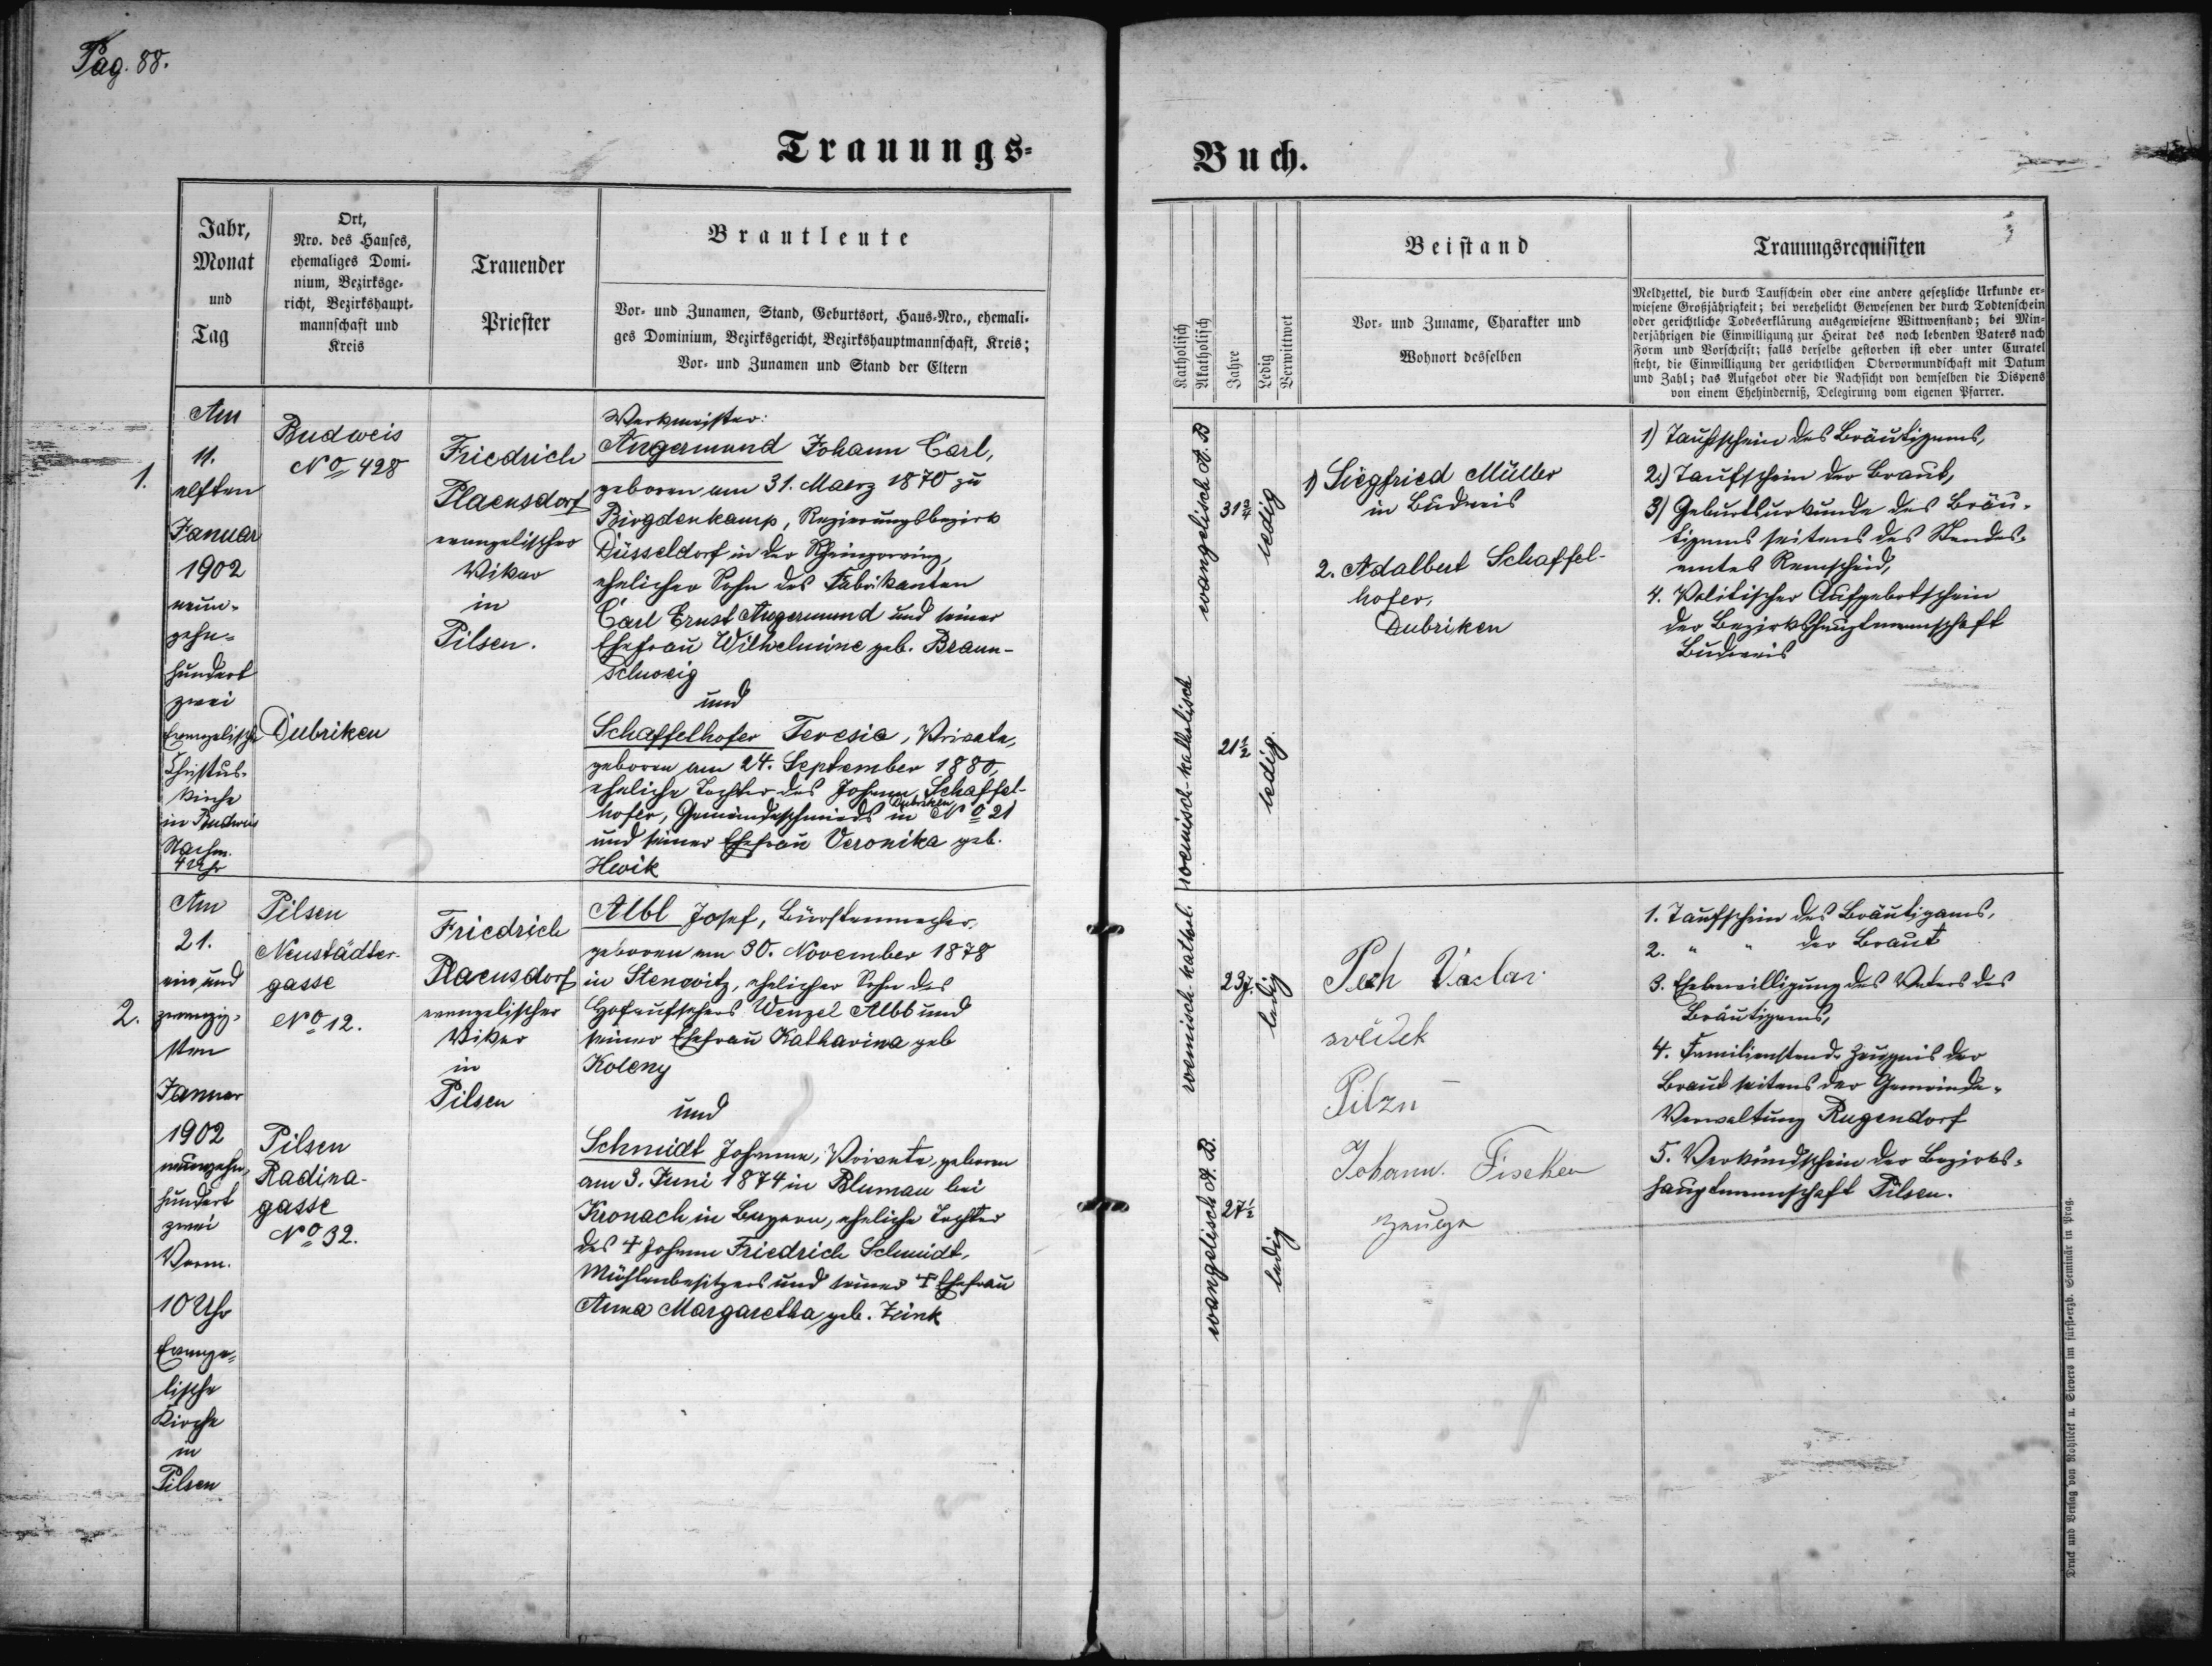 Pag. 88.
Trauungs-
Buch.
Jahr,
Monat
und
Tag
Ort,
Nro. des Hauses,
ehemaliges Domi-
nium, Bezirksge-
richt, Bezirkshaupt-
mannschaft und
Kreis
Trauender
Priester
Brautleute
Vor- und Zunamen, Stand, Geburtsort, Haus-Nro., ehemali-
ges Dominium, Bezirksgericht, Bezirkshauptmannschaft, Kreis;
Vor- und Zunamen und Stand der Eltern
Katholisch
Akatholisch
Jahre
Ledig
Verwittwet
Beistand
Vor- und Zuname, Charakter und
Wohnort desselben
Trauungsrequisiten
Meldzettel, die durch Taufschein oder eine andere gesetzliche Urkunde er-
wiesene Großjährigkeit; bei verehelicht Gewesenen der durch Todtenschein
oder gerichtliche Todeserklärung ausgewiesene Wittwenstand; bei Min-
derjährigen die Einwilligung zur Heirat des noch lebenden Vaters nach
Form und Vorschrift; falls derselbe gestorben ist oder unter Curatel
steht, die Einwilligung der gerichtlichen Obervormundschaft mit Datum
und Zahl; das Aufgebot oder die Nachsicht von demselben die Dispens
von einem Ehehinderniß, Delegirung vom eigenen Pfarrer.
1.
Am
11.
elften
Januar
1902
neun-
zehn-
hundert
zwei
Evangelische
Christus-
kirche
in Budweis
Nachm.
4 Uhr
Budweis
No 428
Dubriken
Friedrich
Plaensdorf
evangelischer
Vikar
in
Pilsen.
Werkmeister:
Angermund Johann Carl,
geboren am 31. Maerz 1870 zu
Birgdenkamp, Regierungsbezirk
Düsseldorf in der Rheinprovinz,
ehelicher Sohn des Fabrikanten
Carl Ernst Angermund und seiner
Ehefrau Wilhelmine geb. Braun-
schweig
und
Schaffelhofer Teresia, Private,
geboren am 24. September 1880,
eheliche Tochter des Johann Schaffel-
hofer, Gemeindeschmieds in Dubriken No 21
und seiner Ehefrau Veronika geb.
Hwik
evangelisch A. B
roemisch-katholisch
31 3/4
21 1/2
ledig
ledig.
1) Siegfried Müller
in Budweis
2. Adalbert Schaffel-
hofer,
Dubriken
1) Taufschein des Bräutigams,
2.) Taufschein der Braut,
3) Geburtsurkunde des Bräu-
tigams seitens des Standes-
amtes Remscheid,
4. Politischer Aufgebotschein
der Bezirkshauptmannschaft
Budweis
2.
Am
21.
ein und
zwanzig-
sten
Januar
1902
neunzehn-
hundert
zwei
Vorm.
10 Uhr
Evange-
lische
Kirche
in
Pilsen
Pilsen
Neustädter-
gasse
No 12.
Pilsen
Radina-
gasse
No 32.
Friedrich
Plaensdorf
evangelischer
Vikar
in
Pilsen
Albl Josef, Bürstenmacher,
geboren am 30. November 1878
in Stenovitz, ehelicher Sohn des
Hofaufsehers Wenzel Albl und
seiner Ehefrau Katharina geb
Koleny
und
Schmidt Johanna, Private, geboren
am 3. Juni 1874 in Blumau bei
Kronach in Bayern, eheliche Tochter
des † Johann Friedrich Schmidt,
Mühlenbesitzers und seiner † Ehefrau
Anna Margaretha geb. Zink
roemisch-kathol.
evangelisch A. B.
23 J.
27 1/2
ledig
ledig
Pech Vaclav
svědek
Pilzn
Johann Fischer
Zeuge
1. Taufschein des Bräutigams,
2. " " der Braut
3. Ehebewilligung des Vaters des
Bräutigams,
4. Familienstands Zeugnis der
Braut seitens der Gemeinde-
Verwaltung Rugendorf
5. Verkündschein der Bezirks-
hauptmannschaft Pilsen.
Druck und Verlag von Rohlicek u. Sievers im fürst-erzb. Seminär in Prag.